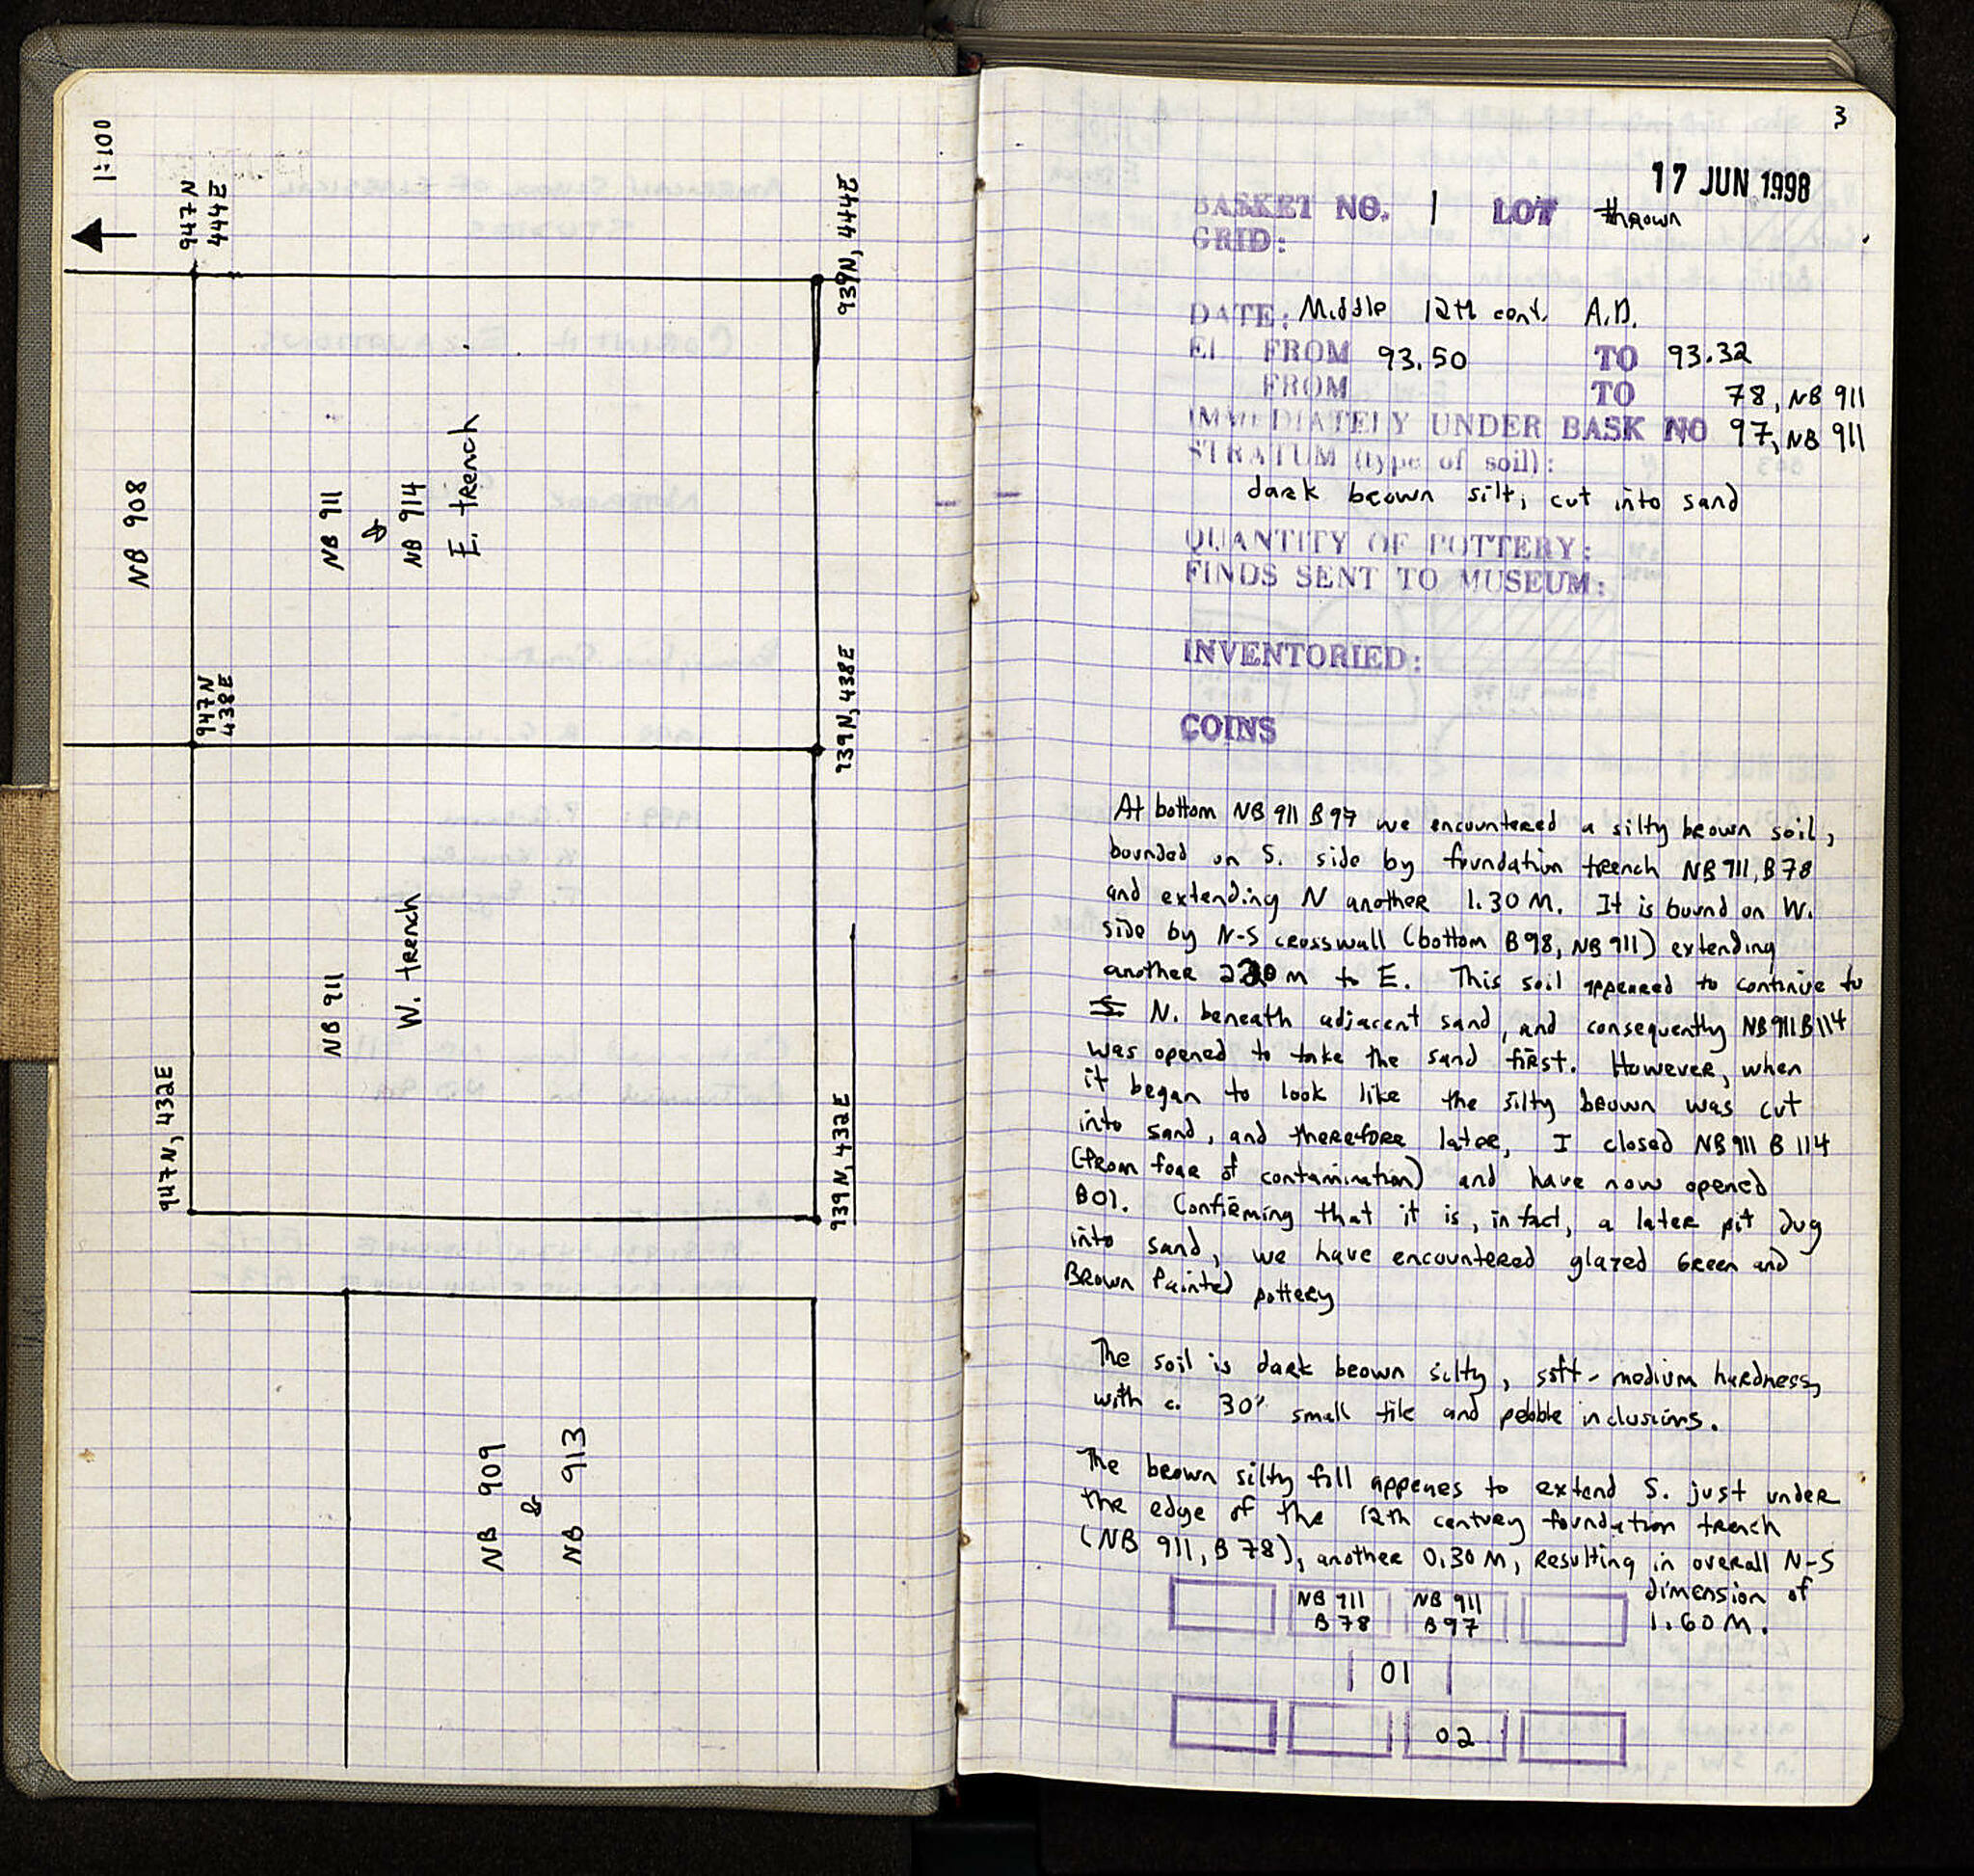 1:100
947N
444E
939N, 444E
NB 908
NB 911
&
NB 914
E. trench
947N
438E
939N, 438E
NB 911
W. trench
947N, 432E
939N, 432E
NB 909
&
NB 913
3
17 JUN 1998
BASKET NO. 1 LOT thrown
GRID:
DATE: Middle 12th cent. A.D.
EL. FROM 93.50 TO 93.32
FROM TO 78, NB 911
IMMEDIATELY UNDER BASK NO 97, NB 911
STRATUM (type of soil):
dark brown silt; cut into sand
QUANTITY OF POTTERY:
FINDS SENT TO MUSEUM:
INVENTORIED:
COINS
At bottom NB 911 B 97 we encountered a silty brown soil,
bounded on S. side by foundation trench NB 911, B 78
and extending N another 1.30 M. It is bound on W.
side by N-S crosswall (bottom B 98, NB 911) extending
another m to E. This soil appeared to continue to
N. beneath adjacent sand, and consequently NB 911 B 114
was opened to take the sand first. However, when
it began to look like the silty brown was cut
into sand, and therefore later, I closed NB 911 B 114
(from fear of contamination) and have now opened
B01. Confirming that it is, in fact, a later pit dug
into sand, we have encountered glazed Green and
Brown Painted pottery
The soil is dark brown silty, soft-medium hardness,
with c. 30% small tile and pebble inclusions.
The brown silty fill appears to extend S. just under
the edge of the 12th century foundation trench
(NB 911, B 78), another 0.30 M, resulting in overall N-S
dimension of
1.60 M.
NB 911 NB 911
B 78 B 97
01
02